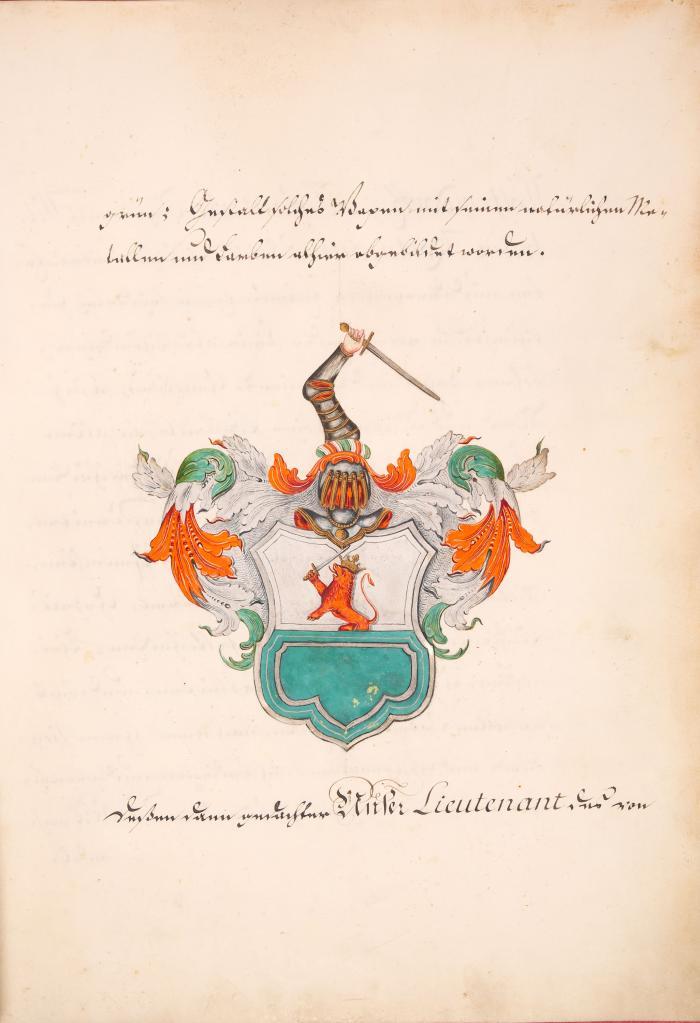 grün: Gestalt solches Wapen mit seinen natürlichen Me-
tallen und Farben alhier abgebildet worden.
Deßen dann gedachter Unser Lieutenant der von